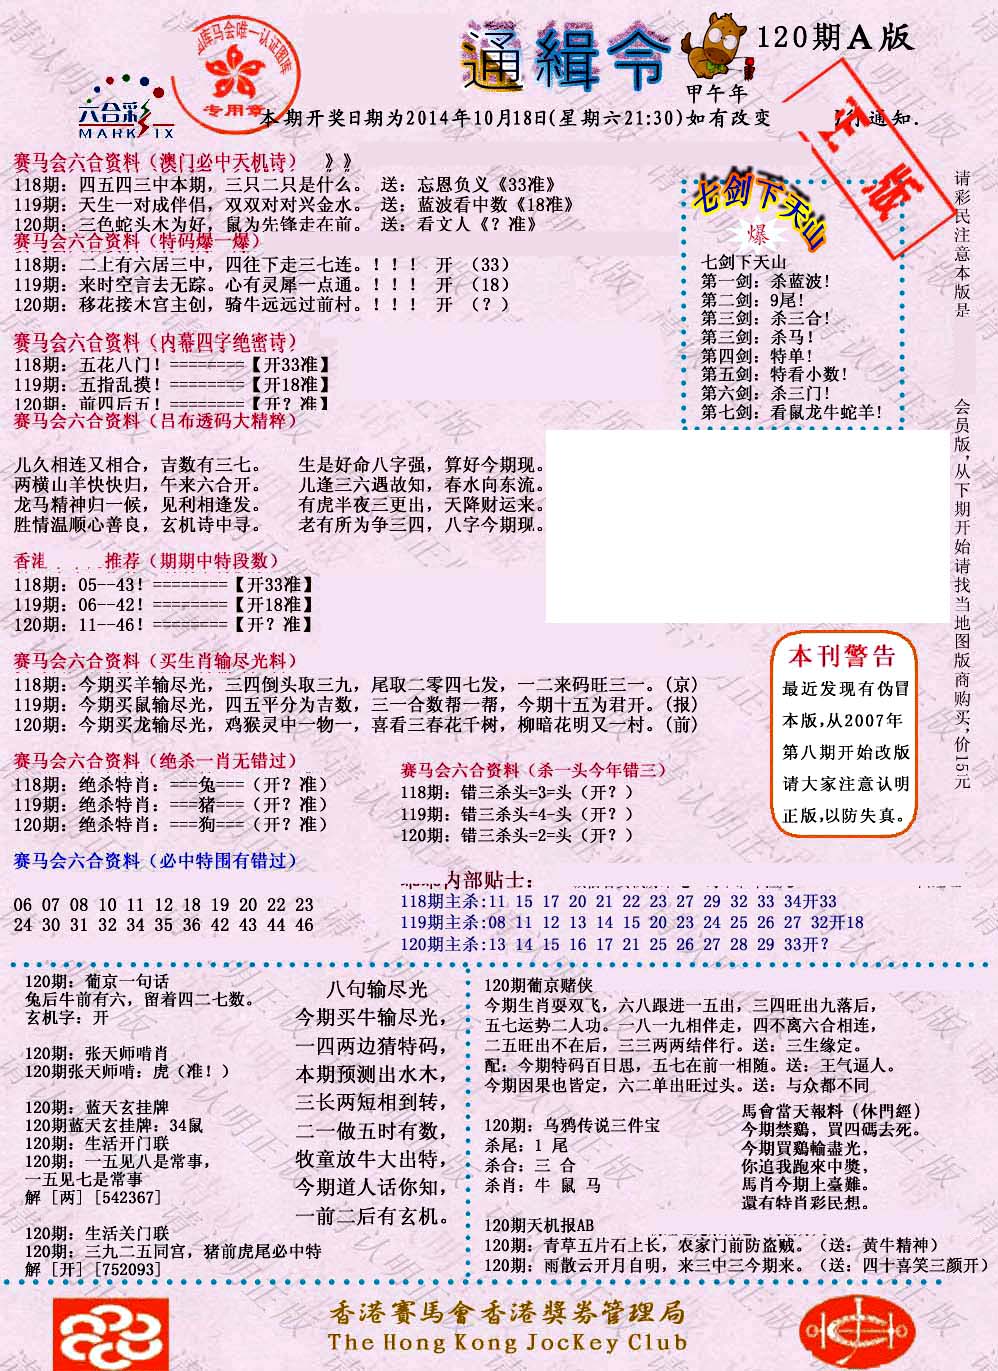 通緝令
甲午年
120期A版
库马会唯一认证图库
专用章
六合彩
MARK SIX
本期开奖日期为2014年10月18日(星期六21:30)如有改变
通知.
赛马会六合资料（澳门必中天机诗） 》》
118期：四五四三中本期，三只二只是什么。 送：忘恩负义《33准》
119期：天生一对成伴侣，双双对对兴金水。 送：蓝波看中数《18准》
120期：三色蛇头木为好，鼠为先锋走在前。 送：看文人《？准》
赛马会六合资料（特码爆一爆）
118期：二上有六居三中，四往下走三七连。！！！ 开 （33）
119期：来时空言去无踪。心有灵犀一点通。！！！ 开 （18）
120期：移花接木宫主创，骑牛远远过前村。！！！ 开 （？）
赛马会六合资料（内幕四字绝密诗）
118期：五花八门！========【开33准】
119期：五指乱摸！========【开18准】
120期：前四后五！========【开？准】
七剑下天山
爆
七剑下天山
第一剑：杀蓝波！
第二剑：9尾！
第三剑：杀三合！
第三剑：杀马！
第四剑：特单！
第五剑：特看小数！
第六剑：杀三门！
第七剑：看鼠龙牛蛇羊！
请彩民注意本版是
会员版，从下期开始请找当地图版商购买，价15元
赛马会六合资料（吕布透码大精粹）
儿久相连又相合，吉数有三七。 生是好命八字强，算好今期现。
两横山羊快快归，午来六合开。 儿逢三六遇故知，春水向东流。
龙马精神归一候，见利相逢发。 有虎半夜三更出，天降财运来。
胜情温顺心善良，玄机诗中寻。 老有所为争三四，八字今期现。
香港
推荐（期期中特段数）
118期：05--43！========【开33准】
119期：06--42！========【开18准】
120期：11--46！========【开？准】
赛马会六合资料（买生肖输尽光料）
118期：今期买羊输尽光，三四倒头取三九，尾取二零四七发，一二来码旺三一。(京)
119期：今期买鼠输尽光，四五平分为吉数，三一合数帮一帮，今期十五为君开。(报)
120期：今期买龙输尽光，鸡猴灵中一物一，喜看三春花千树，柳暗花明又一村。(前)
本刊警告
最近发现有伪冒
本版,从2007年
第八期开始改版
请大家注意认明
正版,以防失真。
赛马会六合资料（绝杀一肖无错过）
118期：绝杀特肖：===兔===（开？准）
119期：绝杀特肖：===猪===（开？准）
120期：绝杀特肖：===狗===（开？准）
赛马会六合资料（杀一头今年错三）
118期：错三杀头=3=头（开？）
119期：错三杀头=4-头（开？）
120期：错三杀头=2=头（开？）
赛马会六合资料（必中特围有错过）
06 07 08 10 11 12 18 19 20 22 23
24 30 31 32 34 35 36 42 43 44 46
内部贴士：
118期主杀:11 15 17 20 21 22 23 27 29 32 33 34开33
119期主杀:08 11 12 13 14 15 20 23 24 25 26 27 32开18
120期主杀:13 14 15 16 17 21 25 26 27 28 29 33开？
120期：葡京一句话
兔后牛前有六，留着四二七数。
玄机字：开
120期：张天师啃肖
120期张天师啃：虎（准！）
120期：蓝天玄挂牌
120期蓝天玄挂牌：34鼠
120期：生活开门联
120期：一五见八是常事，
一五见七是常事
解 [两] [542367]
120期：生活关门联
120期：三九二五同宫，猪前虎尾必中特
解 [开] [752093]
八句输尽光
今期买牛输尽光，
一四两边猜特码，
本期预测出水木，
三长两短相到转，
二一做五时有数，
牧童放牛大出特，
今期道人话你知，
一前二后有玄机。
120期葡京赌侠
今期生肖耍双飞，六八跟进一五出，三四旺出九落后，
五七运势二人功。一八一九相伴走，四不离六合相连，
二五旺出不在后，三三两两结伴行。送：三生缘定。
配：今期特码百日思，五七在前一相随。送：王气逼人。
今期因果也皆定，六二单出旺过头。送：与众都不同
120期：乌鸦传说三件宝
杀尾：1 尾
杀合：三 合
杀肖：牛 鼠 马
馬會當天報料（休門經）
今期禁鷄，買四碼去死。
今期買鷄輸盡光，
你追我跑來中獎，
馬肖今期上臺難。
還有特肖彩民想。
120期天机报AB
120期：青草五片石上长，农家门前防盗贼。（送：黄牛精神）
120期：雨散云开月自明，来三中三今期来。（送：四十喜笑三颜开）
香港賽馬會香港獎券管理局
The Hong Kong JocKey Club